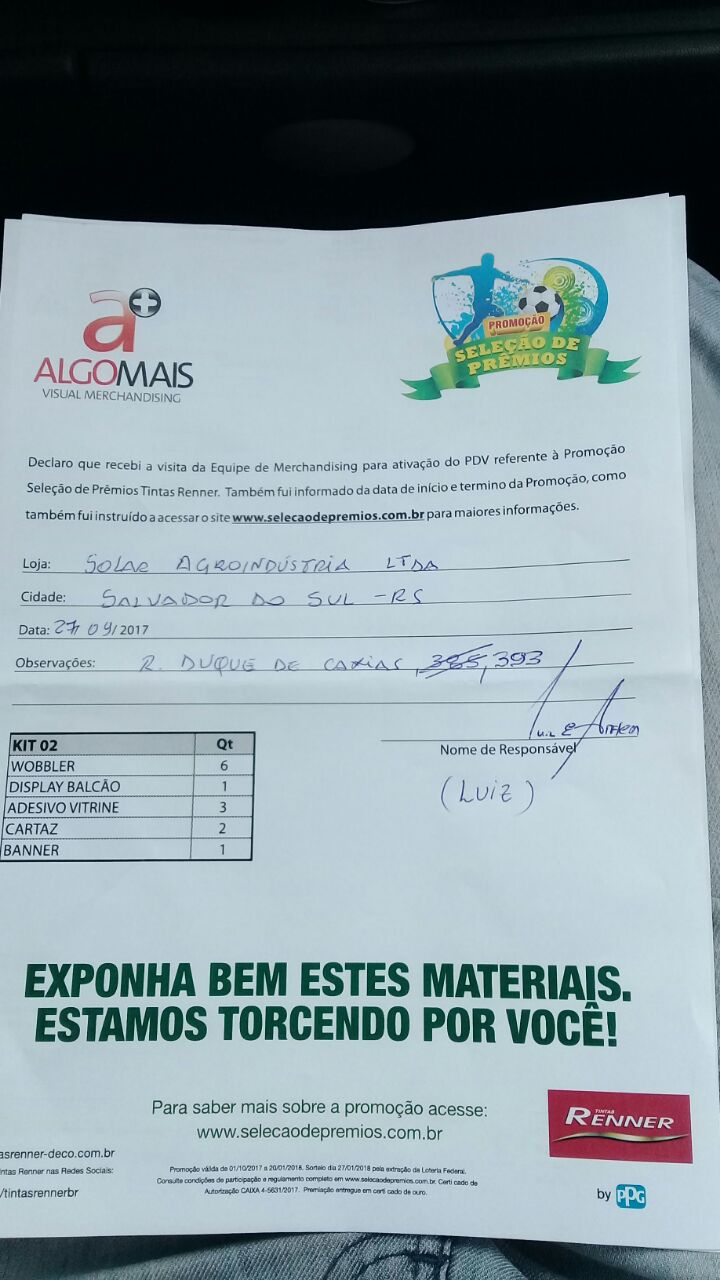 a+
ALGOMAIS
VISUAL MERCHANDISING
PROMOÇÃO
SELEÇÃO DE
PRÊMIOS
Declaro que recebi a visita da Equipe de Merchandising para ativação do PDV referente à Promoção
Seleção de Prêmios Tintas Renner. Também fui informado da data de início e termino da Promoção, como
também fui instruído a acessar o site www.selecaodepremios.com.br para maiores informações.
Loja: SOLAR AGROINDÚSTRIA LTDA
Cidade: SALVADOR DO SUL - RS
Data: 27/09/2017
Observações: R. DUQUE DE CAXIAS, 385, 393
Nome de Responsável
(LUIZ)
KIT 02 Qt
WOBBLER 6
DISPLAY BALCÃO 1
ADESIVO VITRINE 3
CARTAZ 2
BANNER 1
EXPONHA BEM ESTES MATERIAIS.
ESTAMOS TORCENDO POR VOCÊ!
Para saber mais sobre a promoção acesse:
www.selecaodepremios.com.br
TINTAS
RENNER
by PPG
asrenner-deco.com.br
ntas Renner nas Redes Sociais:
/tintasrennerbr
Promoção válida de 01/10/2017 a 20/01/2018. Sorteio dia 27/01/2018 pela extração da Loteria Federal.
Consulte condições de participação e regulamento completo em www.selecaodepremios.com.br. Certi cado de
Autorização CAIXA 4-5631/2017. Premiação entregue em certi cado de ouro.